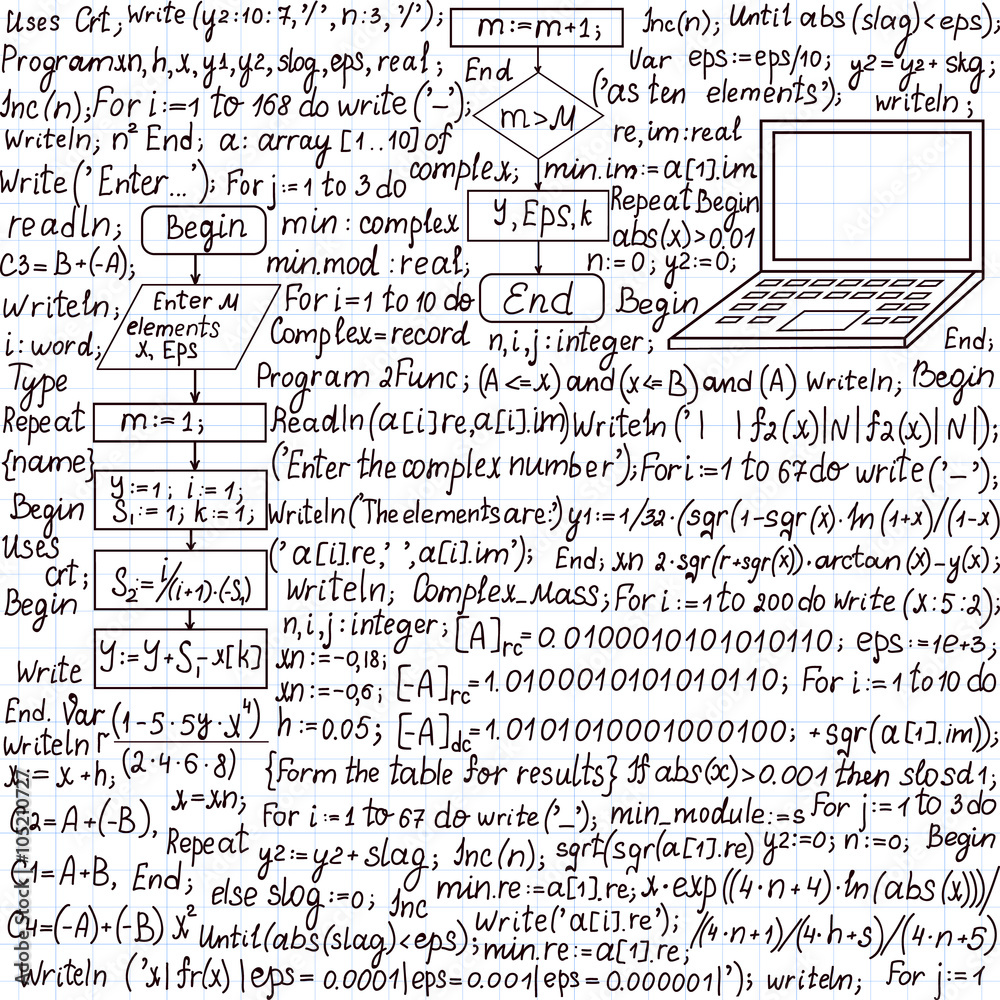 Uses Crt; Write (y2:10:7,'/', n:3, '/');
m:=m+1;
Inc(n); Until abs (slag)<eps);
Programxn, h, x, y1, y2, slog, eps, real;
End
Var eps:=eps/10; y2=y2+skg;
Inc(n); For i:=1 to 168 do write ('-');
m>M
('as ten elements'); writeln;
Writeln; n² End; a: array [1..10] of
re, im:real
Write ('Enter...'); For j:=1 to 3 do
complex; min.im:=a[1].im
readln;
Begin
min: complex
y, Eps, k
Repeat Begin
abs(x)>0.01
C3=B+(-A);
min.mod:real;
n:=0; y2:=0;
Writeln;
Enter M
elements
x, Eps
For i=1 to 10 do
End
Begin
i: word;
Complex=record
n, i, j: integer;
End;
Type
Program 2Func; (A<=x) and (x<=B) and (A) Writeln; Begin
Repeat
m:=1;
Readln(a[i]re, a[i].im) Writeln ('| | f2(x)|N|f2(x)|N|);
{name}
('Enter the complex number'); For i:=1 to 67 do write ('-');
Begin
y:=1; i:=1;
S1:=1; k:=1;
Writeln('The elements are:') y1:=1/32·(sgr(1-sgr(x)·ln(1+x)/(1-x)
Uses
crt;
('a[i].re,' ',a[i].im'); End; xn 2·sgr(r+sgr(x))·arctan(x)-y(x);
Begin
S2:=i/(i+1)·(-S1)
Writeln; Complex_Mass; For i:=1 to 200 do Write (x:5:2);
n, i, j: integer; [A]rc=0.0100010101010110; eps:=1e+3;
Write
y:=y+S1-x[k]
xn:=-0,18;
xn:=-0,6; [-A]rc=1.0100010101010110; For i:=1 to 10 do
End. Var (1-5·5y·x⁴)
h:=0.05; [-A]dc=1.0101010001000100; +sgr(a[1].im));
writeln r
(2·4·6·8)
x:=x+h;
{Form the table for results} If abs(x)>0.001 then slosd1;
x=xn;
C2=A+(-B),
For i:=1 to 67 do write ('_'); min_module:=s For j:=1 to 3 do
Repeat y2:=y2+slag; Inc(n); sqrt(sgr(a[1].re) y2:=0; n:=0; Begin
C1=A+B, End;
else slog:=0; Inc
min.re:=a[1].re; x·exp((4·n+4)·ln(abs(x)))/
C4=(-A)+(-B) x²
Write('a[i].re'); /(4·n+1)/(4·h+s)/(4·n+5)
Until(abs(slag)<eps); min.re:=a[1].re;
Writeln ('x|fr(x)|eps=0.0001|eps=0.001|eps=0.000001|'); writeln; For j:=1
Adobe Stock | #105290727